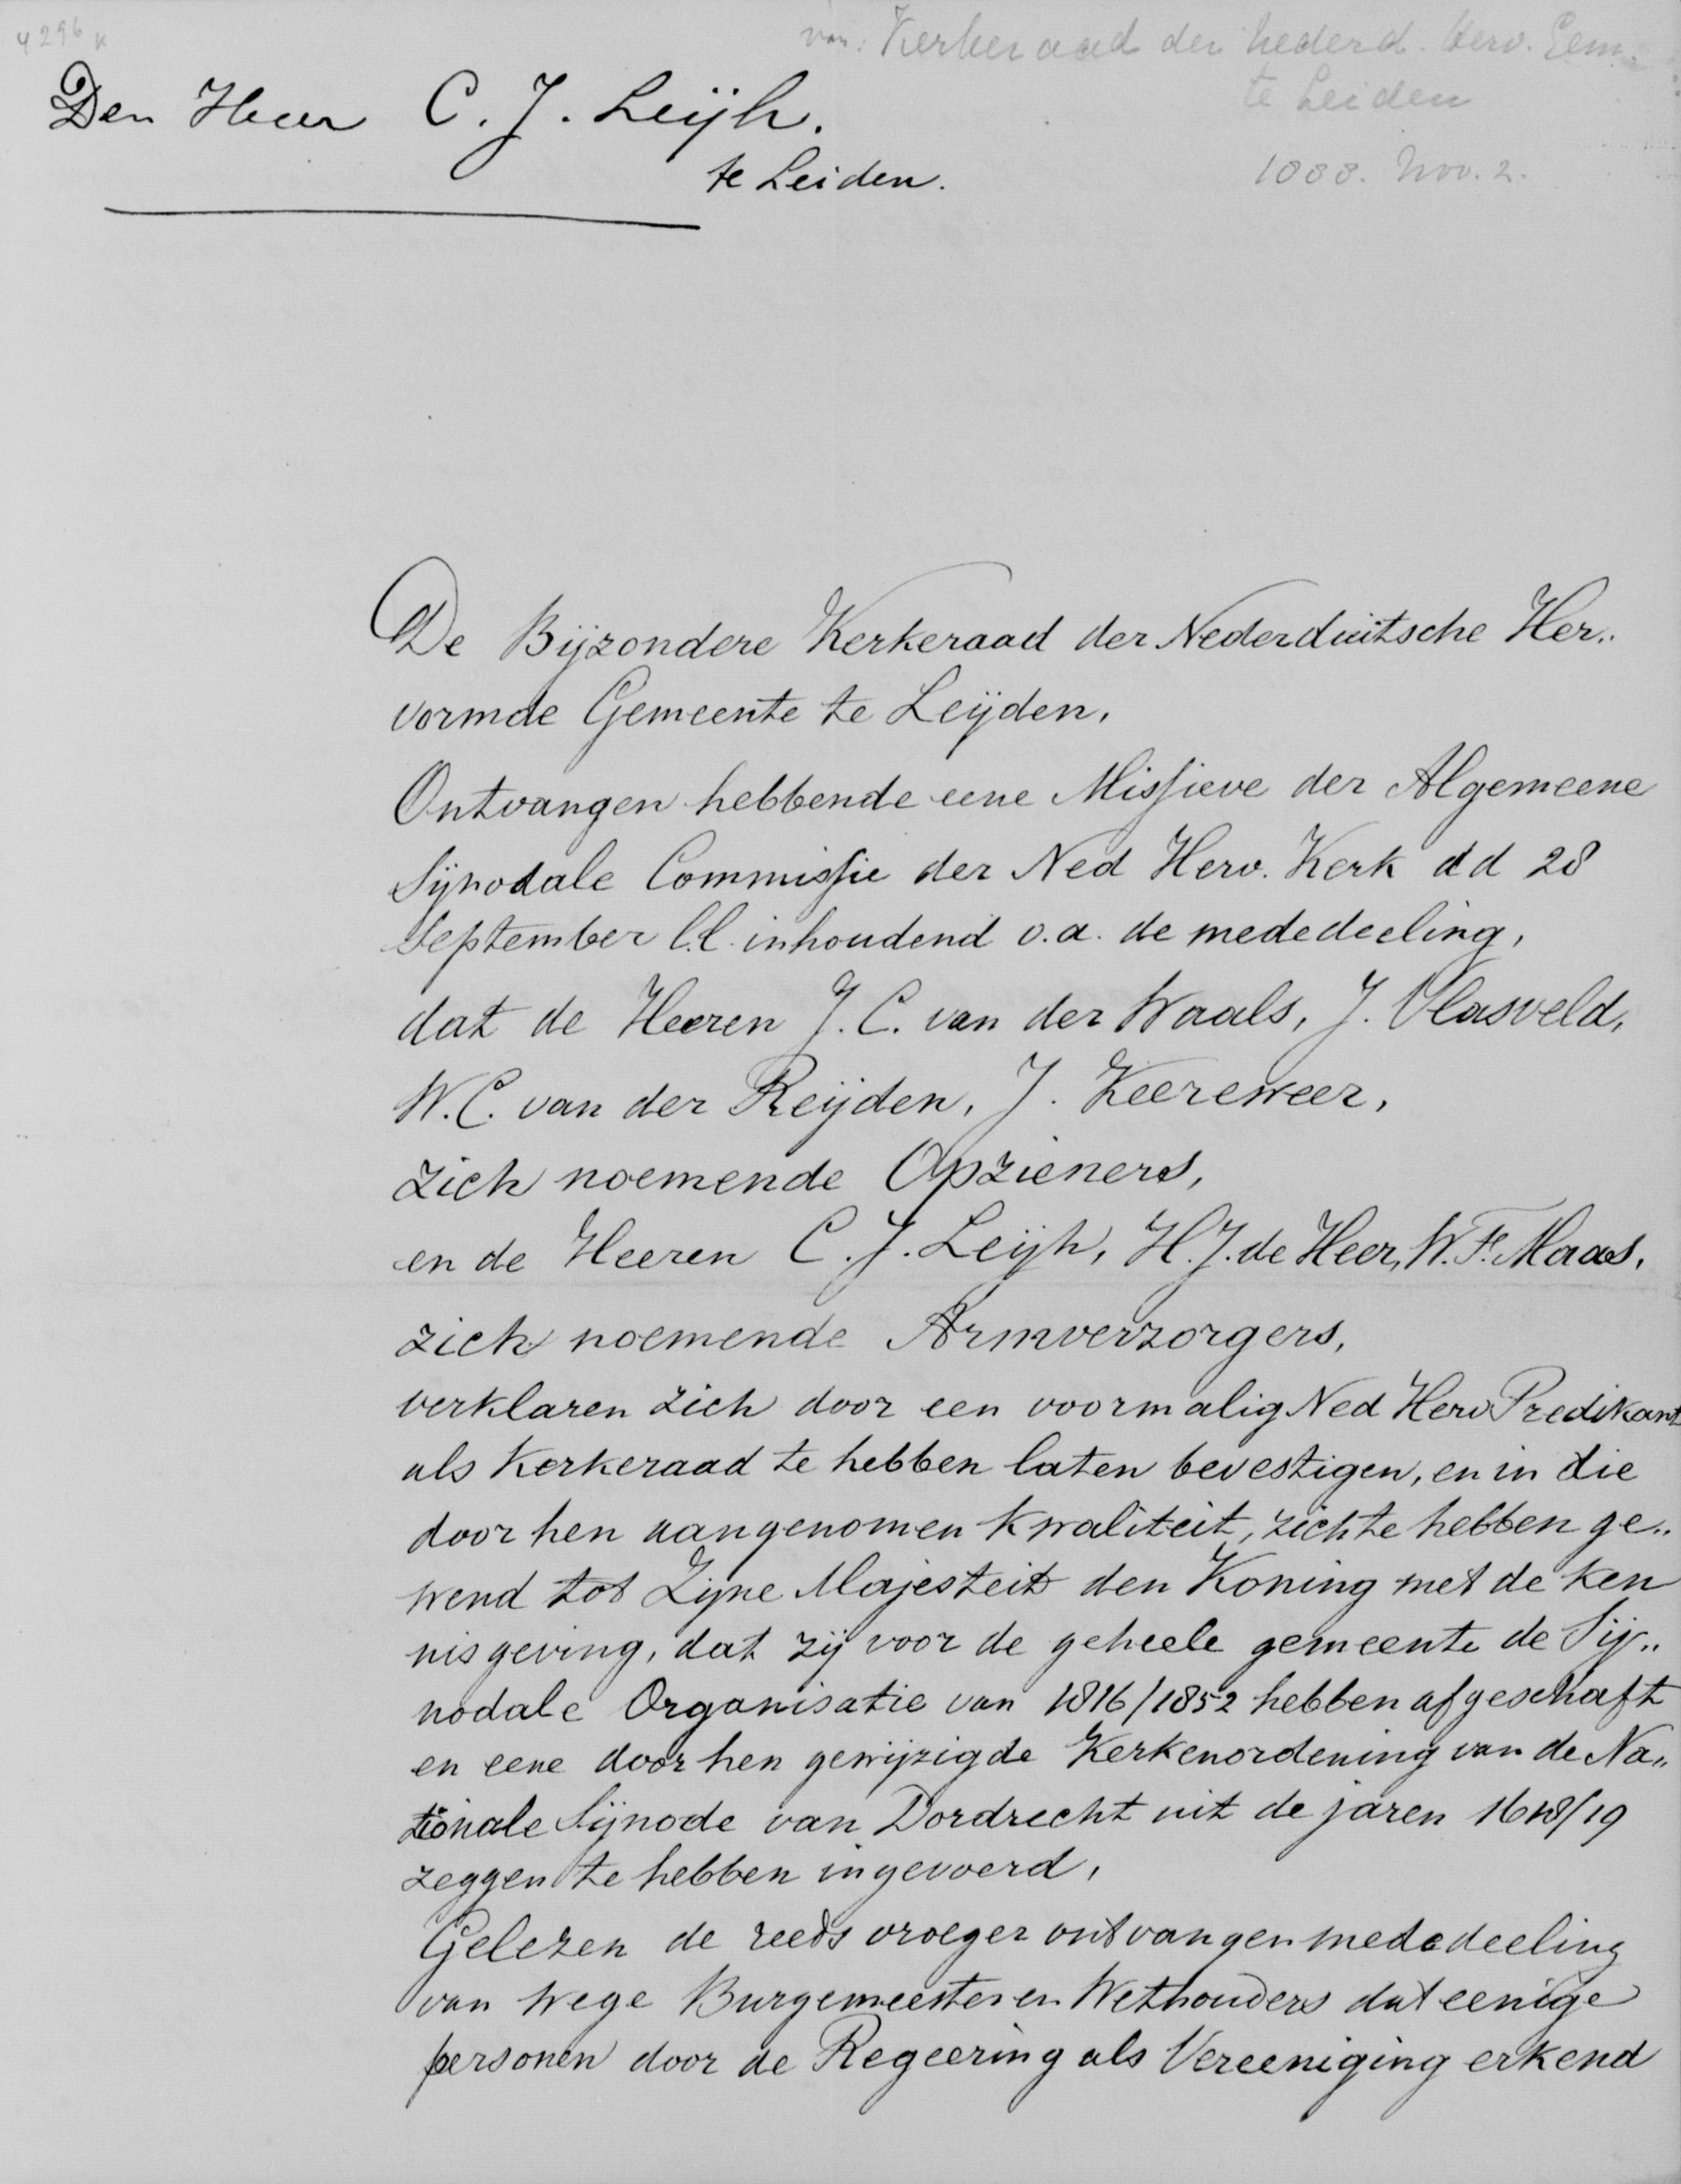 4296 k
van: Kerkeraad der Nederd. Herv. Gem.
te Leiden
1888. Nov. 2.
Den Heer C. J. Leijh.
te Leiden.
De Bijzondere Kerkeraad der Nederduitsche Her„
vormde Gemeente te Leijden,
Ontvangen hebbende eene Missieve der Algemeene
Sijnodale Commissie der Ned Herv. Kerk dd 28
September l.l. inhoudend o.a. de mededeeling,
dat de Heeren J. C. van der Waals, J. Vlasveld,
W. C. van der Reijden, J. Keereweer,
zich noemende Opzieners,
en de Heeren C. J. Leijh, H. J. de Heer, W. F. Maas,
zich noemende Armverzorgers,
verklaren zich door een voormalig Ned Herv Predikant
als Kerkeraad te hebben laten bevestigen, en in die
door hen aangenomen kwaliteit, zich te hebben ge„
wend tot Zijne Majesteit den Koning met de ken
nisgeving, dat zij voor de geheele gemeente de Sij„
nodale Organisatie van 1816/1852 hebben afgeschaft
en eene door hen gewijzigde Kerkenordening van de Na„
tionale Sijnode van Dordrecht uit de jaren 1618/19
zeggen te hebben ingevoerd,
Gelezen de reeds vroeger ontvangen mededeeling
van wege Burgemeester en Wethouders dat eenige
personen door de Regeering als Vereeniging erkend